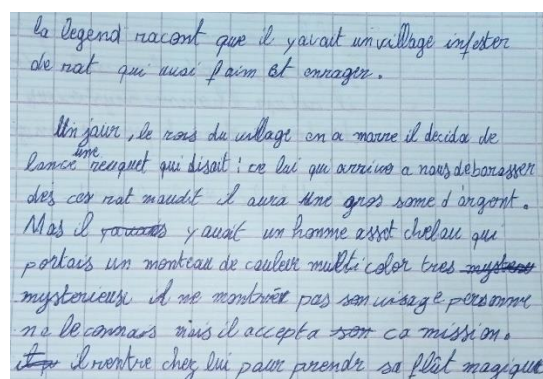 la legend racont que il yavait un village infester
de rat qui avai faim et enrager.
Un jour, le rois du village en a marre il decida de
lance une reuquet qui disait : ce lui qui arrive a nous debarasser
des ces rat maudit il aura une gros some d'argent.
Mas il y avait un homme assot chelou qui
portais un monteau de couleur multi color tres
mysterieuse il ne montrer pas son visage personne
ne le connais mais il accepta ca mission.
il rentre chez lui pour prendr sa flût magique